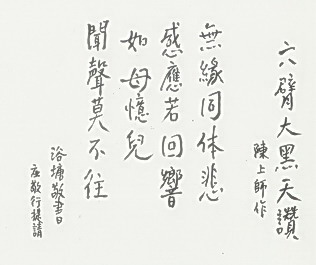 六臂大黑天讚
陳上師作
無緣同体悲
感應若回響
如母憶兒
聞聲莫不往
浴塘敬書
應敬行提請